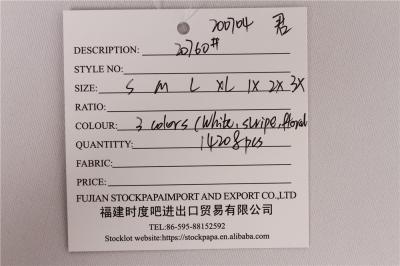 200704 君
DESCRIPTION: 20760#
STYLE NO:
SIZE: S M L XL 1X 2X 3X
RATIO:
COLOUR: 3 colors (white, stripe, floral
QUANTITTY: 14208pcs
FABRIC:
PRICE:
FUJIAN STOCKPAPAIMPORT AND EXPORT CO.,LTD
福建时度吧进出口贸易有限公司
TEL:86-595-88152592
Stocklot website:https://stockpapa.en.alibaba.com